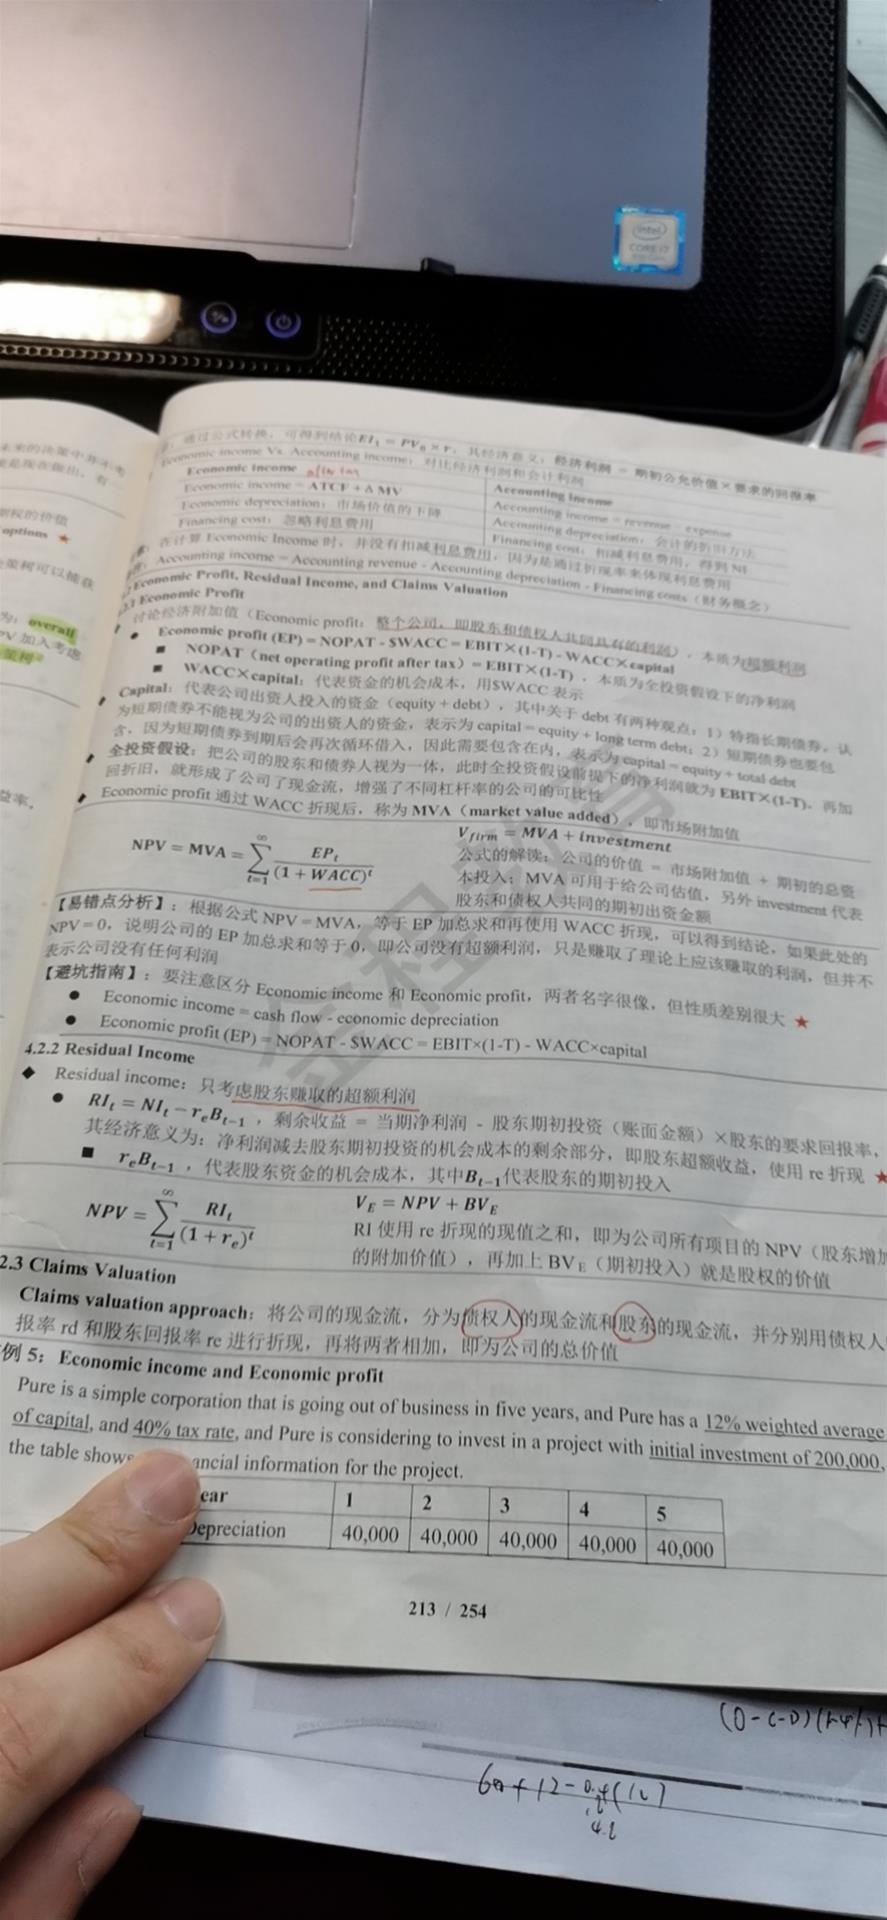 intel
CORE i7
未来的决策中并不考
就是现在做出，有
期权的价值
options ★
策树可以捕获
为：overall
PV 加入考虑
策树
益率。
通过公式转换，可得到结论EI₁ = PV₀ × r，其经济意义：经济利润 = 期初公允价值×要求的回报率
Economic income Vs. Accounting income：对比经济利润和会计利润
Economic income after tax
Accounting income
Economic income = ATCF + Δ MV
Accounting income = revenue - expense
Economic depreciation：市场价值的下降
Accounting depreciation：会计的折旧方法
Financing cost：忽略利息费用
Financing cost：扣减利息费用，得到 NI
在计算 Economic Income 时，并没有扣减利息费用，因为是通过折现率来体现利息费用
Accounting income = Accounting revenue - Accounting depreciation - Financing costs（财务概念）
Economic Profit, Residual Income, and Claims Valuation
Economic Profit
讨论经济附加值（Economic profit：整个公司，即股东和债权人共同具有的利润），本质为超额利润
● Economic profit (EP) = NOPAT - $WACC = EBIT×(1-T) - WACC×capital
■ NOPAT（net operating profit after tax）= EBIT×(1-T)，本质为全投资假设下的净利润
■ WACC×capital：代表资金的机会成本，用$WACC 表示
◆ Capital：代表公司出资人投入的资金（equity + debt），其中关于 debt 有两种观点：1）特指长期债券，认
为短期债券不能视为公司的出资人的资金，表示为 capital = equity + long term debt；2）短期债券也要包
含，因为短期债券到期后会再次循环借入，因此需要包含在内，表示为 capital = equity + total debt
◆ 全投资假设：把公司的股东和债券人视为一体，此时全投资假设前提下的净利润就为 EBIT×(1-T)，再加
回折旧，就形成了公司了现金流，增强了不同杠杆率的公司的可比性
◆ Economic profit 通过 WACC 折现后，称为 MVA（market value added），即市场附加值
NPV = MVA = ∑_{t=1}^{∞} EP_t / (1 + WACC)^t
V_firm = MVA + investment
公式的解读：公司的价值 = 市场附加值 + 期初的总资
本投入；MVA 可用于给公司估值，另外 investment 代表
股东和债权人共同的期初出资金额
【易错点分析】：根据公式 NPV = MVA，等于 EP 加总求和再使用 WACC 折现，可以得到结论，如果此处的
NPV = 0，说明公司的 EP 加总求和等于 0，即公司没有超额利润，只是赚取了理论上应该赚取的利润，但并不
表示公司没有任何利润
【避坑指南】：要注意区分 Economic income 和 Economic profit，两者名字很像，但性质差别很大 ★
● Economic income = cash flow - economic depreciation
● Economic profit (EP) = NOPAT - $WACC = EBIT×(1-T) - WACC×capital
4.2.2 Residual Income
◆ Residual income：只考虑股东赚取的超额利润
● RI_t = NI_t − r_eB_{t−1}，剩余收益 = 当期净利润 - 股东期初投资（账面金额）×股东的要求回报率，
其经济意义为：净利润减去股东期初投资的机会成本的剩余部分，即股东超额收益，使用 re 折现 ★
■ r_eB_{t−1}，代表股东资金的机会成本，其中B_{t−1}代表股东的期初投入
NPV = ∑_{t=1}^{∞} RI_t / (1 + r_e)^t
V_E = NPV + BV_E
RI 使用 re 折现的现值之和，即为公司所有项目的 NPV（股东增加
的附加价值），再加上 BV_E（期初投入）就是股权的价值
2.3 Claims Valuation
Claims valuation approach：将公司的现金流，分为债权人的现金流和股东的现金流，并分别用债权人
报率 rd 和股东回报率 re 进行折现，再将两者相加，即为公司的总价值
例 5：Economic income and Economic profit
Pure is a simple corporation that is going out of business in five years, and Pure has a 12% weighted average
of capital, and 40% tax rate, and Pure is considering to invest in a project with initial investment of 200,000,
the table shows ancial information for the project.
ear 1 2 3 4 5
Depreciation 40,000 40,000 40,000 40,000 40,000
213 / 254
金程教育